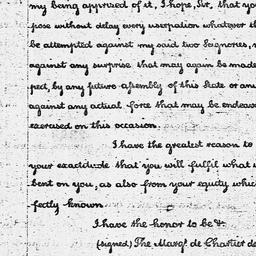 my being apprized of it, I hope, Sir, that you
pose without delay every usurpation whatever th
be attempted against my said two Seignories,
against any surprise that may again be made
pect, by any future assembly of this State or any
against any actual force that may be endeavo
exercised on this occasion.
I have the greatest reason to
your exactitude that you will fulfil what i
bent on you, as also from your equity which
fectly known
I have the honor to be &
(signed) The Marqs de Chartier de